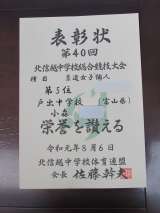 表彰状
第40回
北信越中学校総合競技大会
種目 柔道女子個人
第5位
戸出中学校 (富山県)
小森
栄誉を讃える
令和元年8月6日
北信越中学校体育連盟
会長 佐藤幹夫